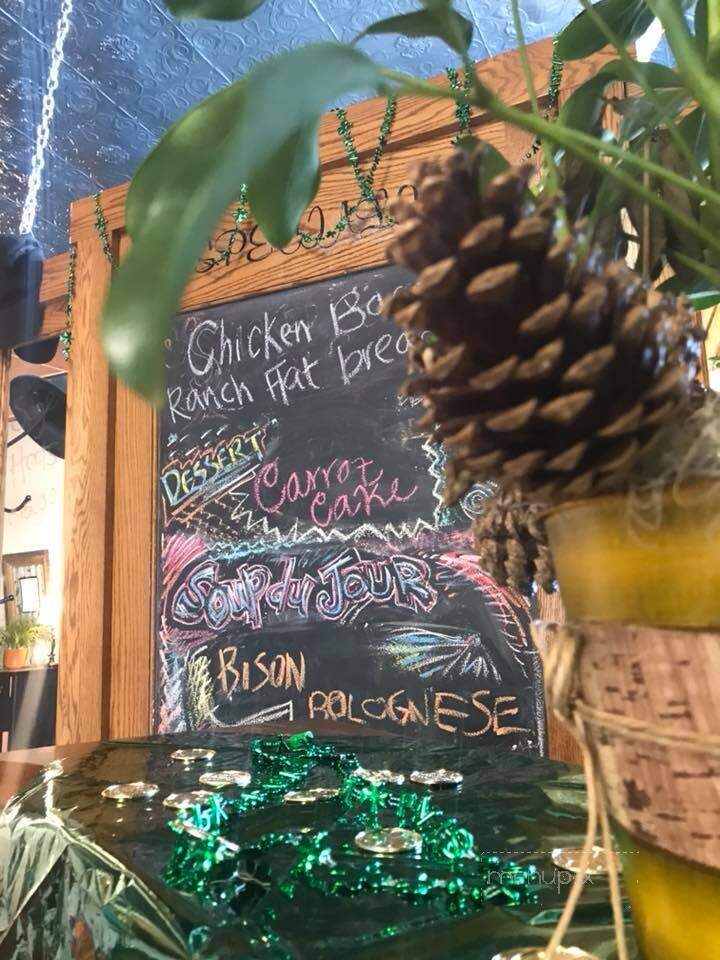 Chicken
Ranch flat
DESSERT
Carrot
Cake
SOUP du JOUR
BISON
BOLOGNESE
menupix